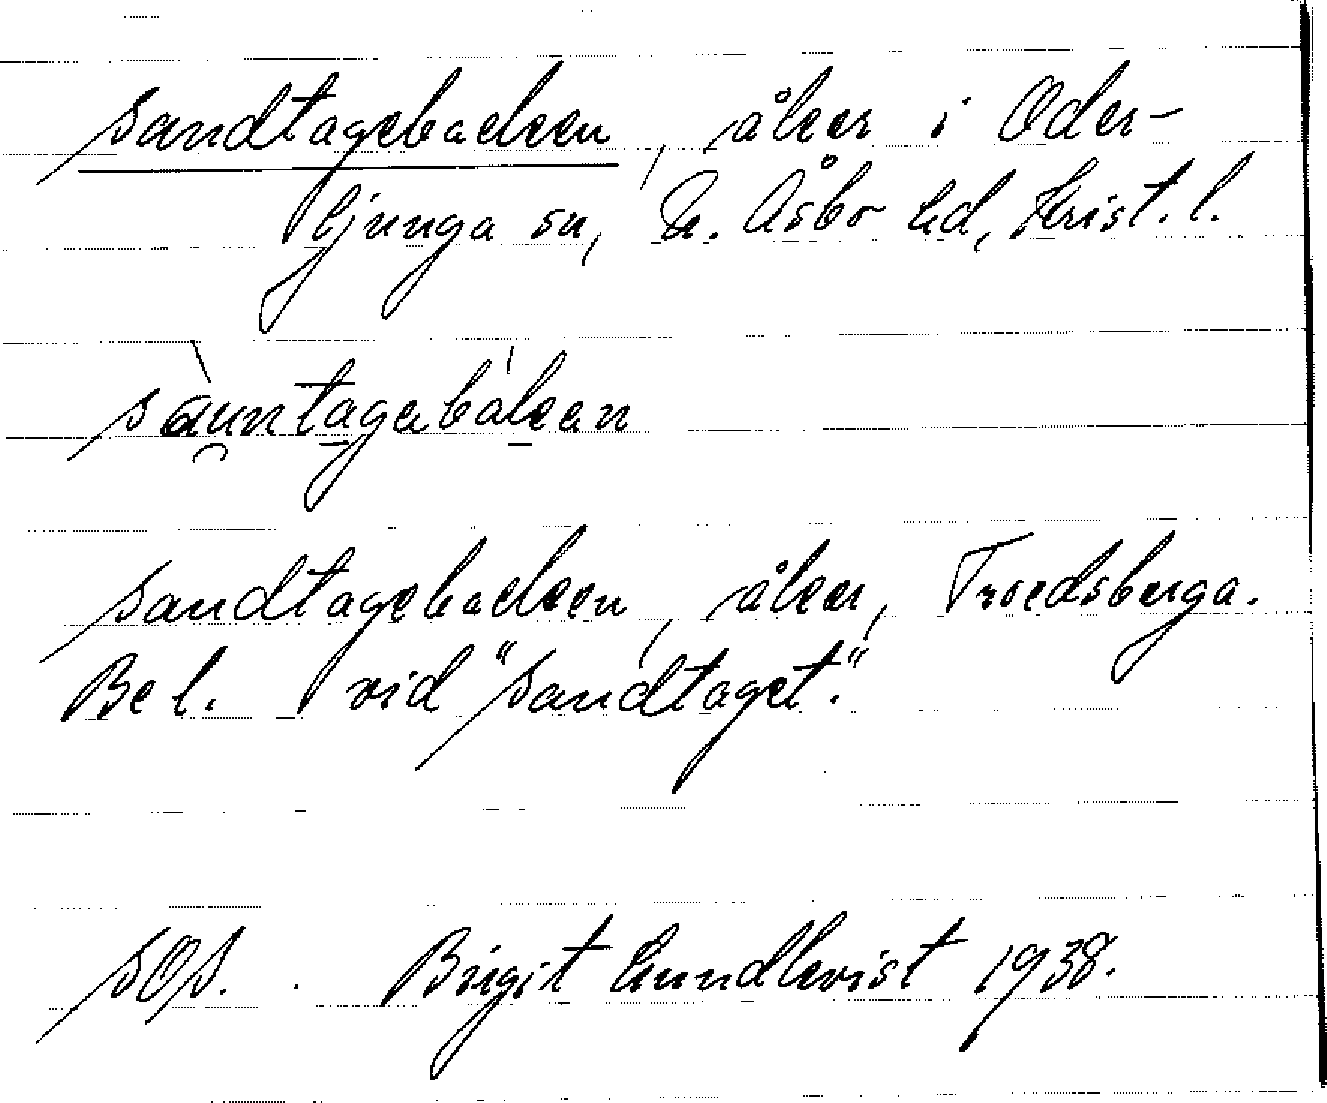 Sandtagebacken, åker i Oder-
ljunga sn, N. Åsbo hd, Krist. l.
sànntagabák̄an
Sandtagebacken, åker, Troedsberga.
Bel. vid "Sandtaget."
SOS. Birgit Lundkvist 1938.